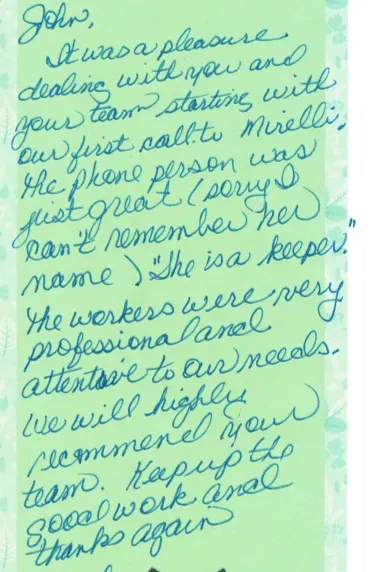 John,
It was a pleasure
dealing with you and
your team starting with
our first call to Mirelli,
the phone person was
just great (sorry I
can't remember her
name) "She is a keeper."
The workers were very
professional and
attentive to our needs.
We will highly
recommend your
team. Keep up the
good work and
thanks again